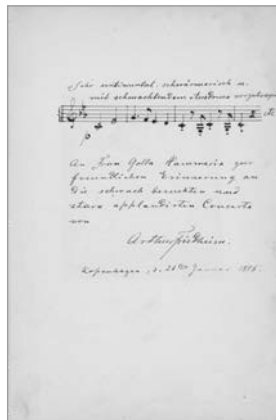 Sehr sentimental, schwärmerisch u.
mit schmachtendem Ausdruck
p
An Frau Golla Hammerich zur
freundlichen Erinnerung an
die schwach besuchten und
stark applaudirten Concerte
von
Arthur Friedheim.
Kopenhagen, d. 26ten Januar